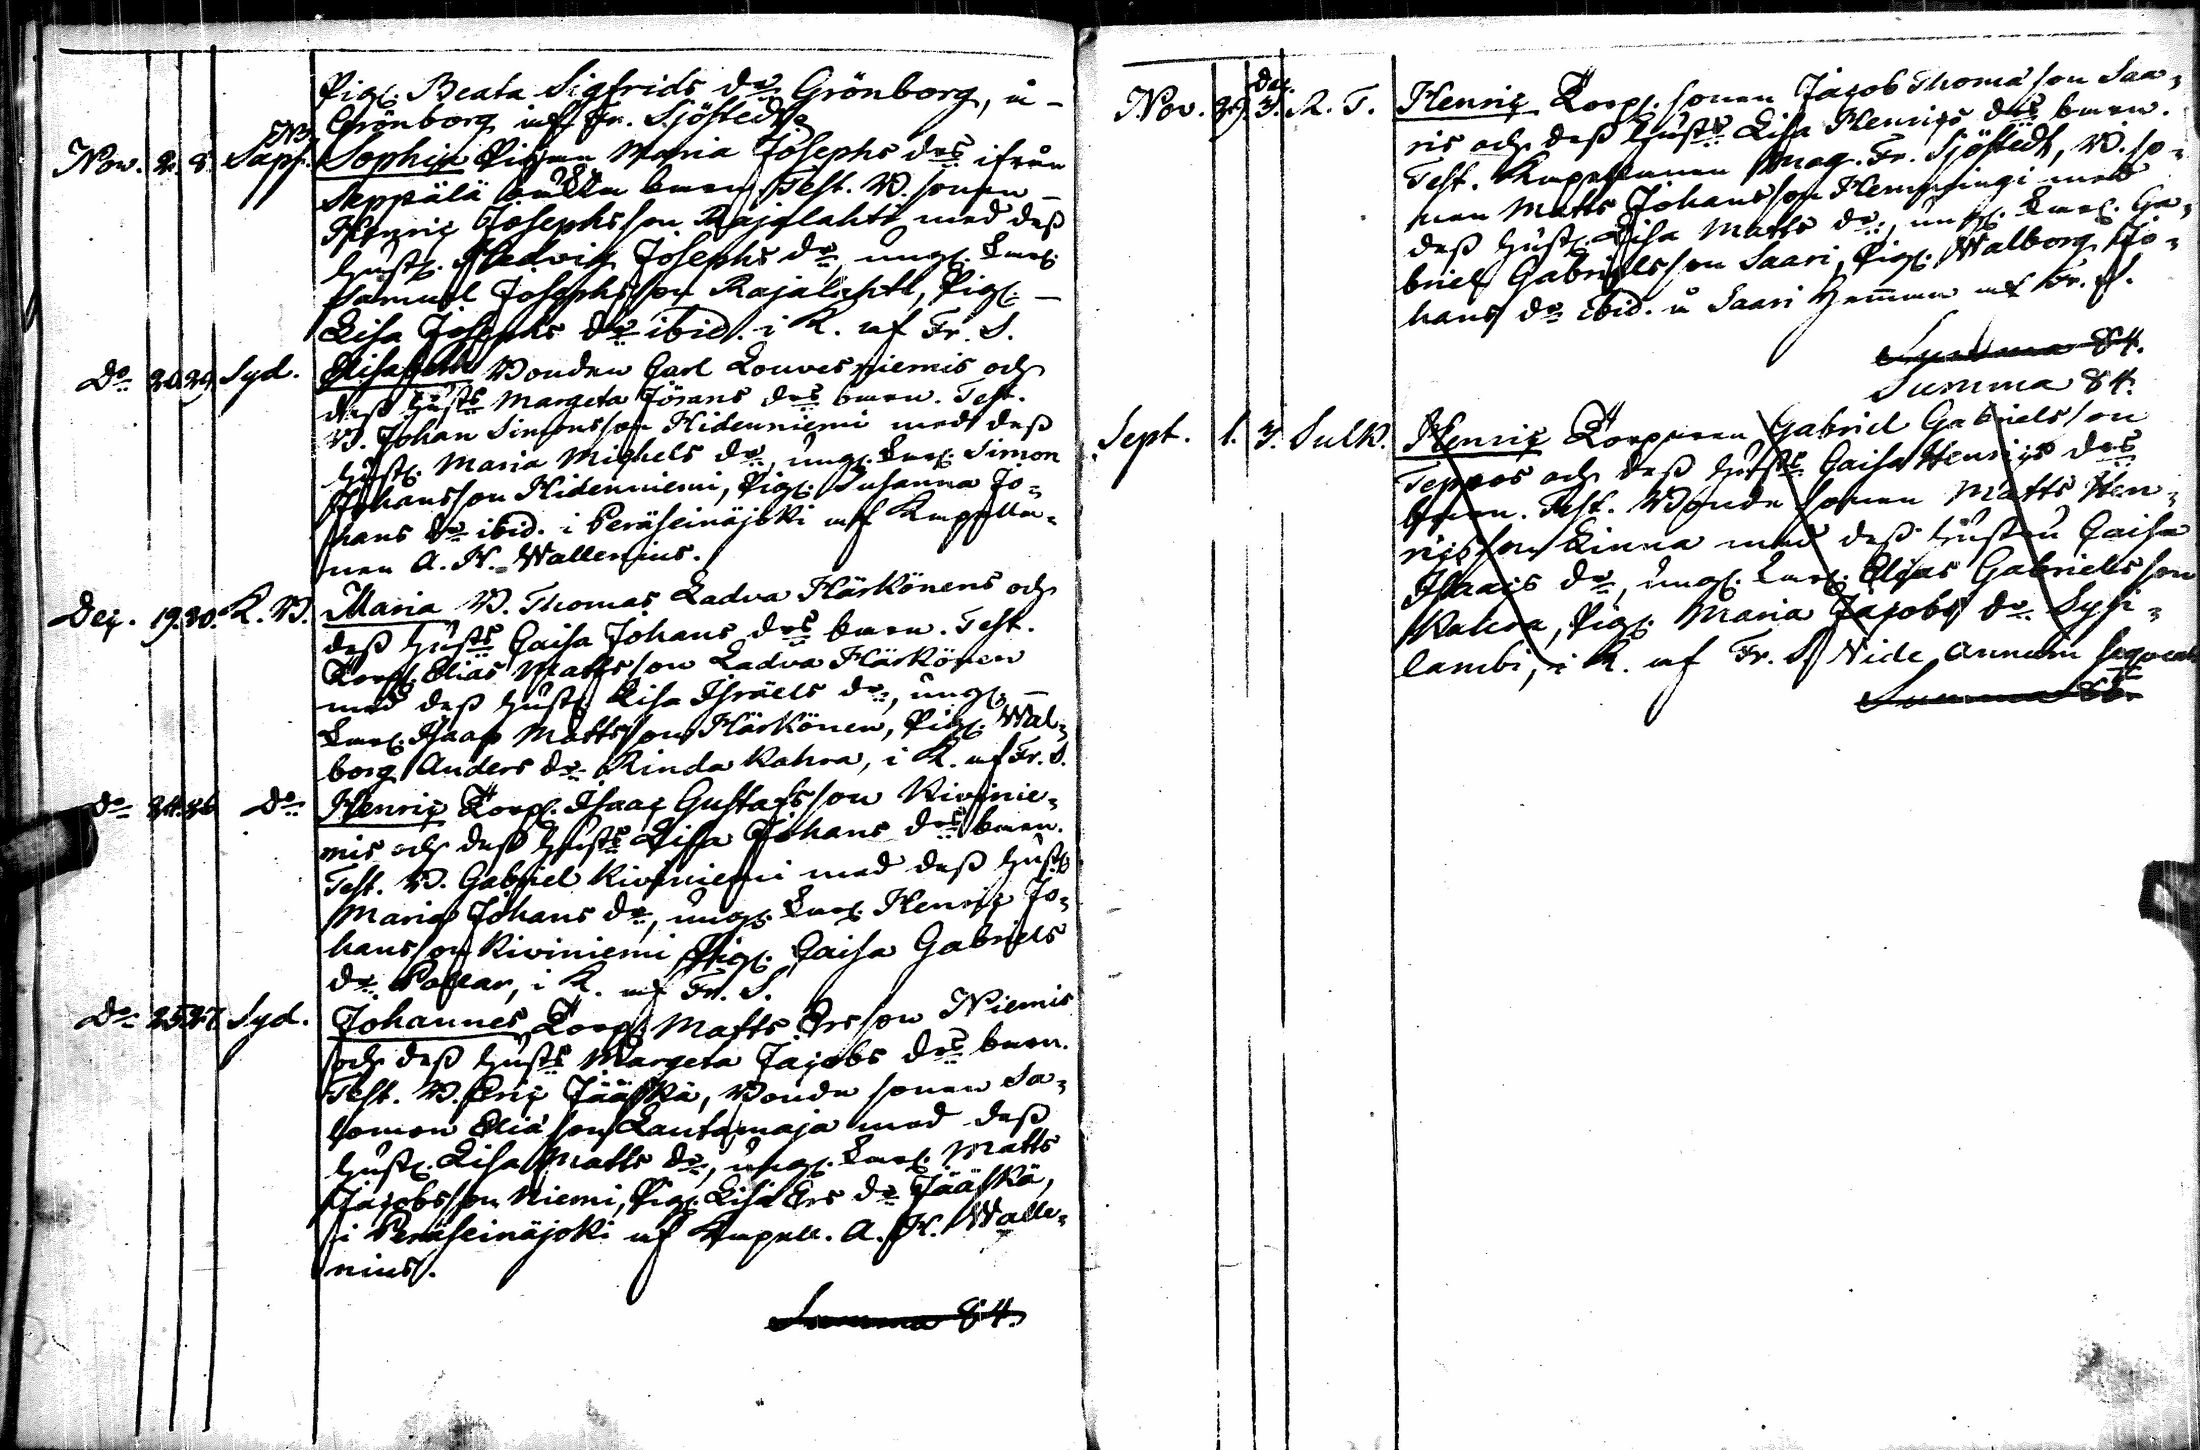 Pig. Beata Sigfrids dr Grönborg, å
Grönborg af Fr. Sjöstedt
Nov. 2. 8. Saps. Sophia Pigan Maria Josephs drs ifrån
Seppälä barn Test. B. sonen
Henric Josephsson Rajalahti med dess
hustr. Hedvig Josephs dr, ung. kar.
Samuel Josephsson Rajalahti, Pig.
Lisa Josephs dr ibid. i K. af Fr. S.
Do 20. 29 Syd. Elisabeth Bonden Carl Louvesniemis och
dess hustrs Margeta Jörans drs barn. Test.
B. Johan Simonsson Hidenniemi med dess
hustr. Maria Michels dr, ung. kar. Simon
Johansson Hidenniemi, Pig. Susanna Jo-
hans dr ibid. i Peräseinäjoki af Kapella-
nen A. H. Wallenius.
Dec. 19. 20. K. B. Maria B. Thomas Ladva Härkönens och
dess hustrs Caisa Johans drs barn. Test.
Torp. Elias Mattsson Ladva Härkönen
med dess hustr. Lisa Israels dr, ung.
kar. Isaac Mattsson Härkönen, Pig. Wal-
borg Anders dr Rinda Kahra, i K. af Fr. S.
Do 24. 26 Do Henric Torp. Isaac Gustafsson Kivinie-
mis och dess hustrs Lisa Johans drs barn.
Test. B. Gabriel Kiviniemi med dess hustr.
Maria Johans dr, ung. kar. Henric Jo-
hansson Kiviniemi Pig. Caisa Gabriels
dr, i K. af Fr. S.
Do 25. 27. Syd. Johannes Torp. Matts Ersson Niemis
och dess hustrs Margeta Jacobs drs barn.
Test. B. Eric Jääskä, Bonde sonen Sa-
lomon Eliasson Lautamaja med dess
hustr. Lisa Matts dr, ung. kar. Matts
Jacobsson Niemi, Pig. Lisa Ers dr Jääskä,
i Peräseinäjoki af Kapell. A. H. Walle-
nius.
Summa 84.
Dec.
Nov. 29. 3. K. T. Henric Torp. sonen Jacob Thomasson Saa-
ris och dess hustrs Lisa Henrics drs barn.
Test. Kapellanen Mag. Fr. Sjöstedt, B. so-
nen Matts Johansson Hemmingi med
dess hustr. Lisa Matts dr, ung. kar. Ga-
briel Gabrielsson Saari, Pig. Walborg Jo-
hans dr ibid. å Saari Hemman af Fr. S.
Summa 84.
Summa 84.
Sept. 1. 3. Sulk. Henric Torparen Gabriel Gabrielsson
Teppos och dess hustrs Caisa Henrics drs
barn. Test. Bonde sonen Matts Hen-
ricsson Linna med dess hustru Caisa
Isaacs dr, ung. kar. Elias Gabrielsson
Kahra, Pig. Maria Jacobs dr Syri-
lambi, i K. af Fr. S. Vide annum sequent
Summa 85.